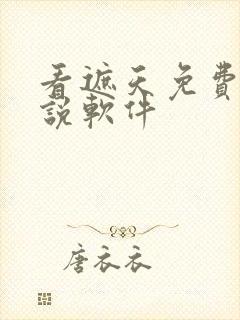 看遮天免費
說軟件
唐衣衣